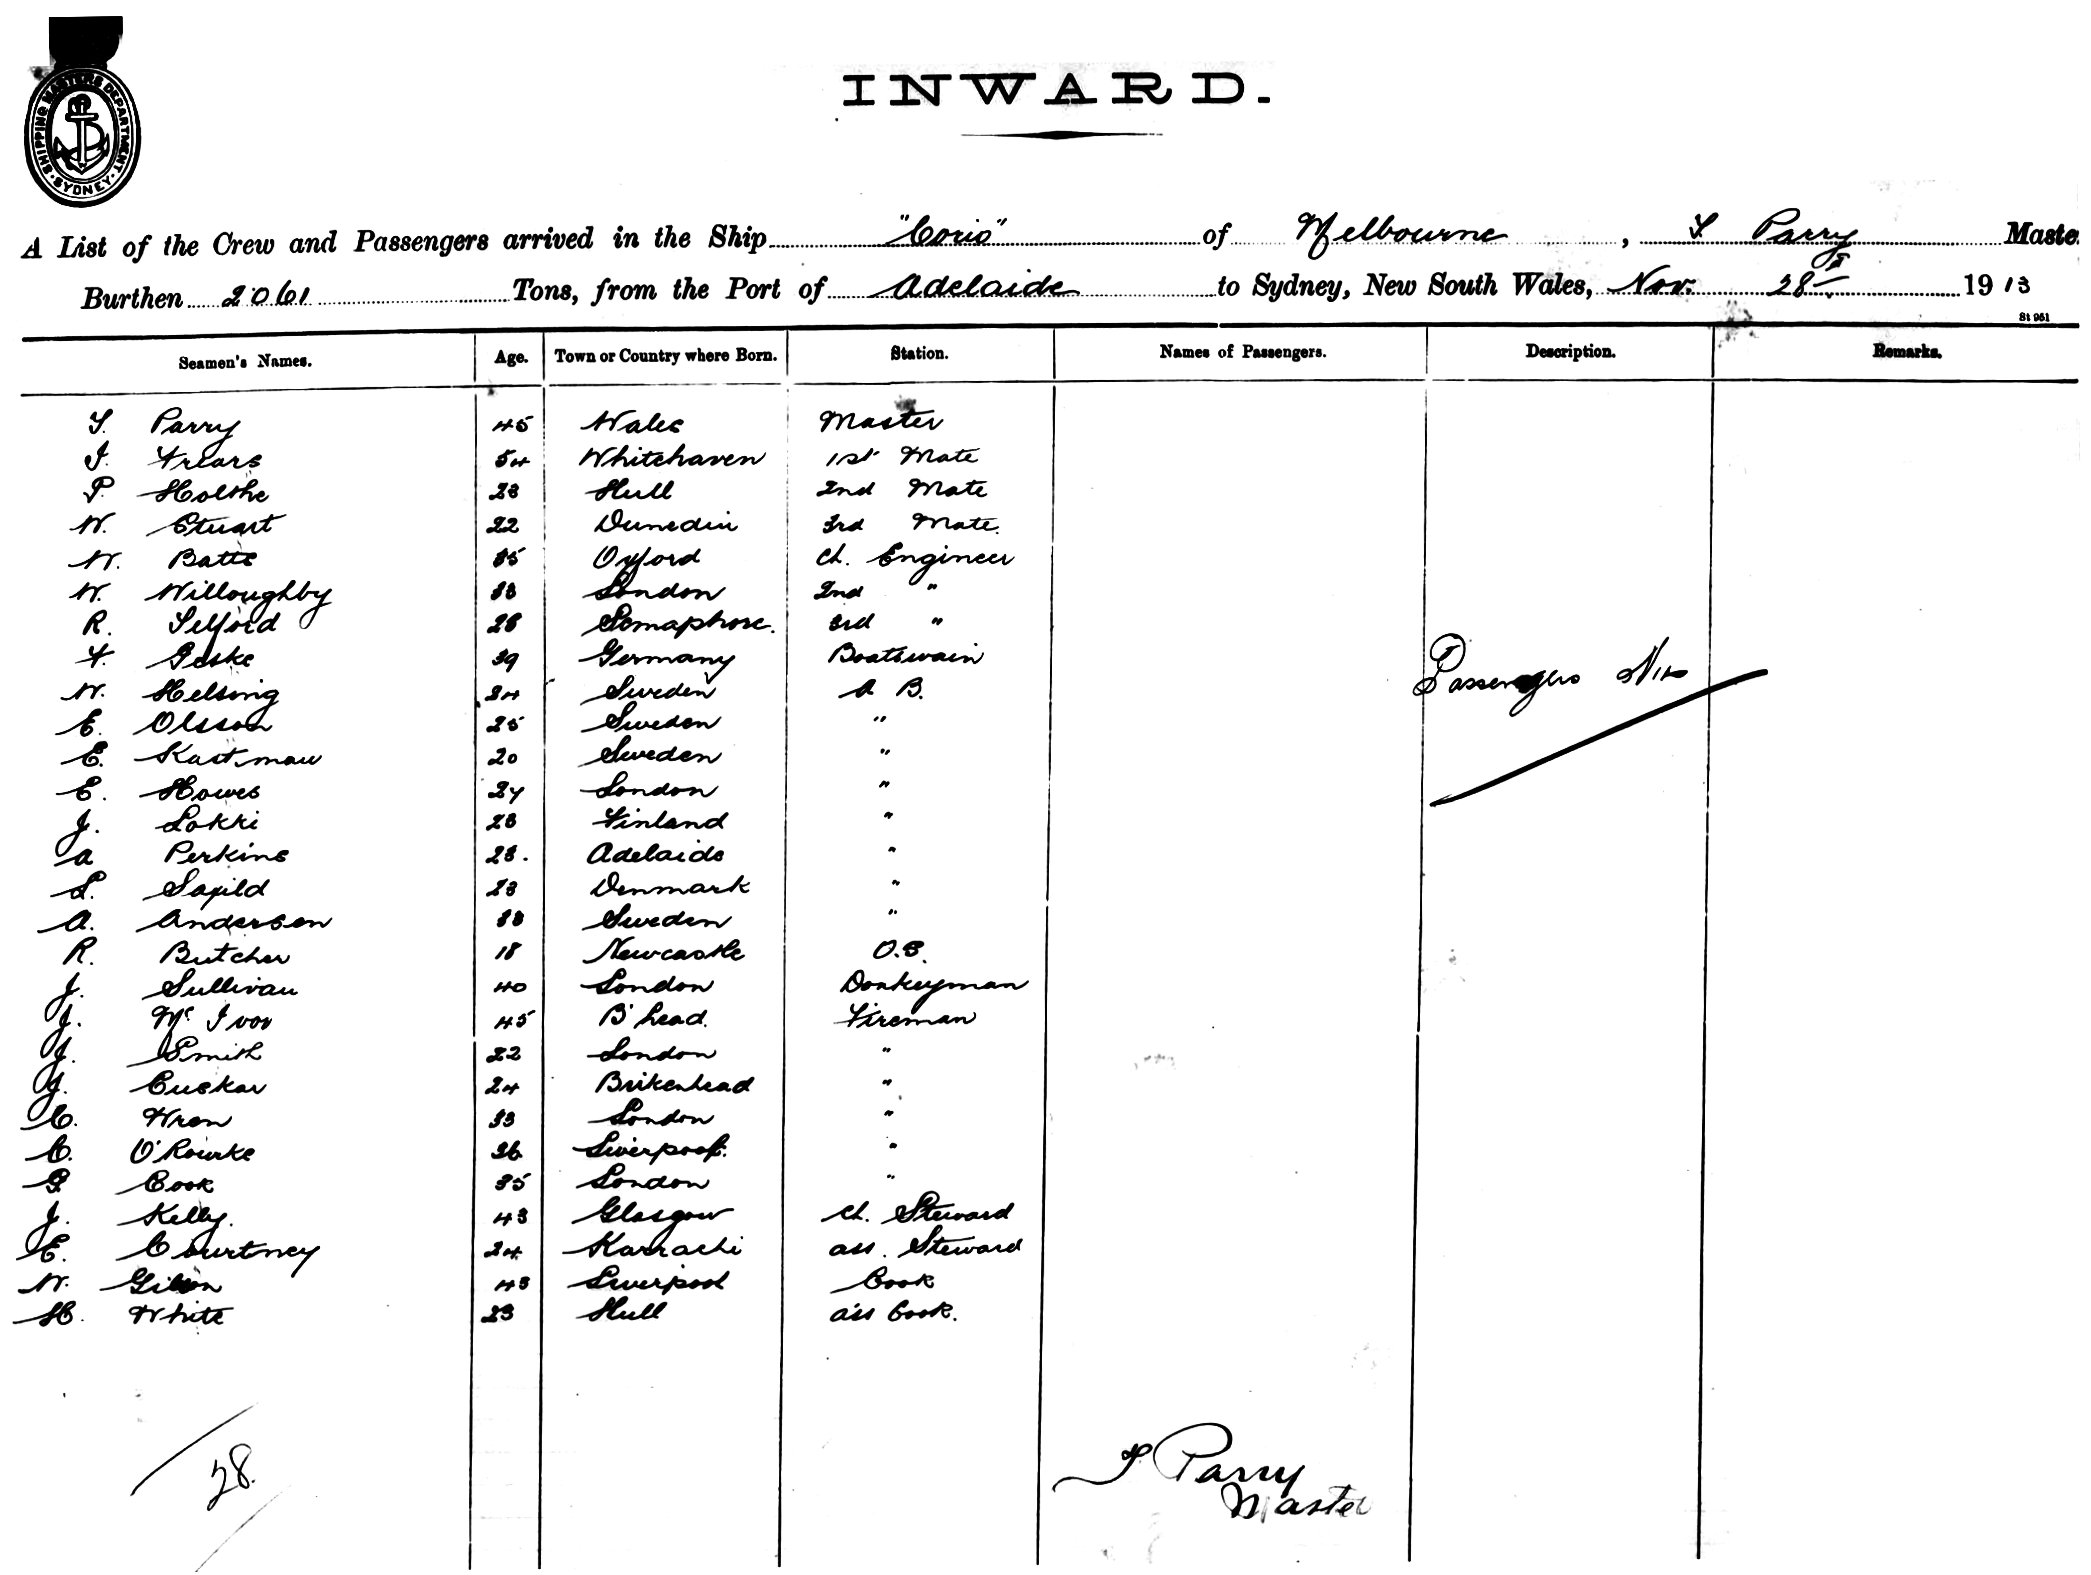 SHIPPING MASTERS DEPARTMENT. SYDNEY.
INWARD.
A List of the Crew and Passengers arrived in the Ship "Corio" of Melbourne, T. Parry Maste
Burthen 2061 Tons, from the Port of Adelaide to Sydney, New South Wales, Nov. 28th 1913
Seamen's Names. Age. Town or Country where Born. Station. Names of Passengers. Description. Remarks.
Parry 45 Wales Master
J. Friars 54 Whitehaven 1st Mate
P. Holthe 23 Hull 2nd Mate
W. Stuart 22 Dunedin 3rd Mate.
W. Batts 35 Oxford Ch. Engineer
W. Willoughby 33 London 2nd "
R. Telford 28 Semaphore. 3rd "
F. Geske 39 Germany Boatswain
W. Helsing 24 Sweden A B.
Passengers Nil
E. Olsson 25 Sweden "
E. Kastman 20 Sweden "
E. Howes 27 London "
J. Lokki 23 Finland "
A Perkins 23. Adelaide "
L. Saxild 23 Denmark "
A. Anderson 33 Sweden "
R. Butcher 18 Newcastle O.S.
J. Sullivan 40 London Donkeyman
J. Mc Ivor 45 B'head. Fireman
J. Smith 22 London "
J. Cuskar 24 Brikenhead "
C. Wren 33 London "
C. O'Rourke 26 Liverpool. "
G. Cook 35 London "
J. Kelly. 43 Glasgow Ch. Steward
E. Courtney 24 Karrachi ass. Steward
W. 43 Liverpool Cook
H. White 23 Hull ass Cook.
28.
T Parry
Master